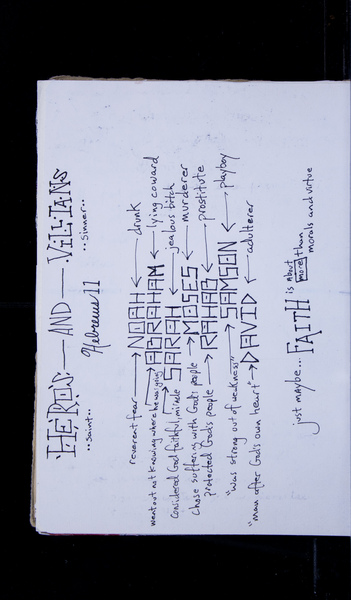 HEROES — AND — ViLLiANS
..saint.. ..sinner..
Hebrews 11
reverent fear → NOAH ← drunk
went out not knowing where he was going → ABRAHAM ← lying coward
considered God faithful, miracle → SARAH ← jealous bitch
chose suffering with God's people → MOSES ← murderer
protected God's people → RAHAB ← prostitute
"was strong out of weakness" → SAMSON ← playboy
"man after God's own heart" → DAVID ← adulterer
just maybe... FAITH is about more than morals and virtue